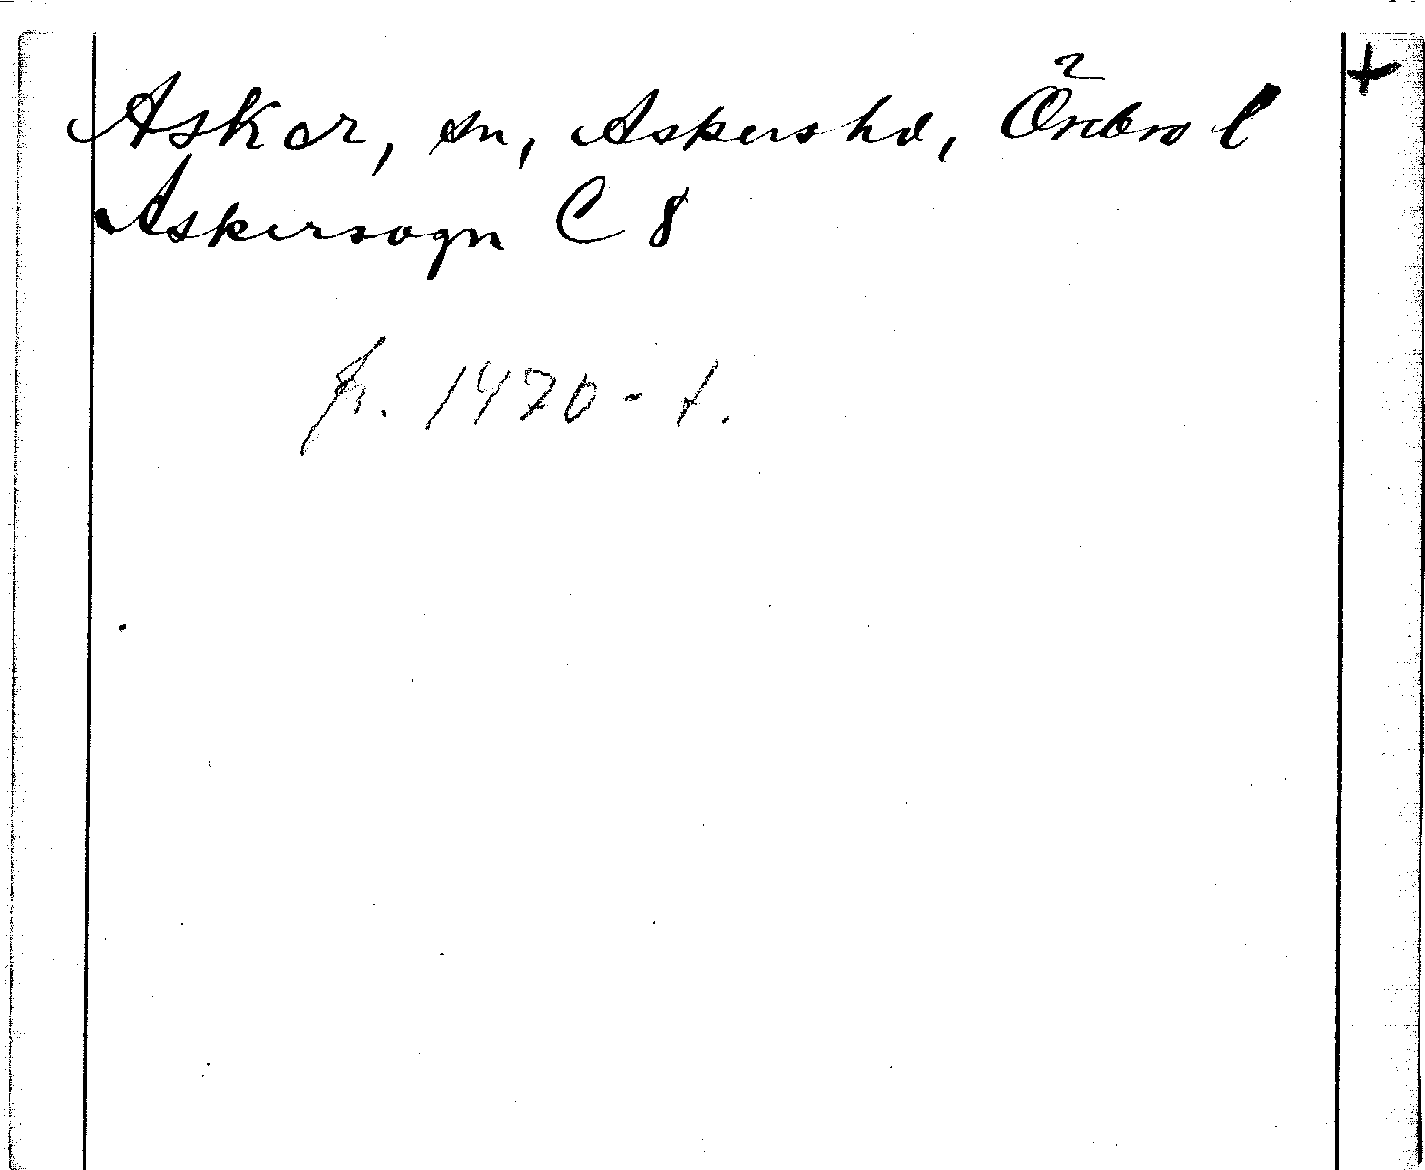 Asker, sn, Askers hd, Örebro l +
Askersogn C 8
fr. 1470-t.